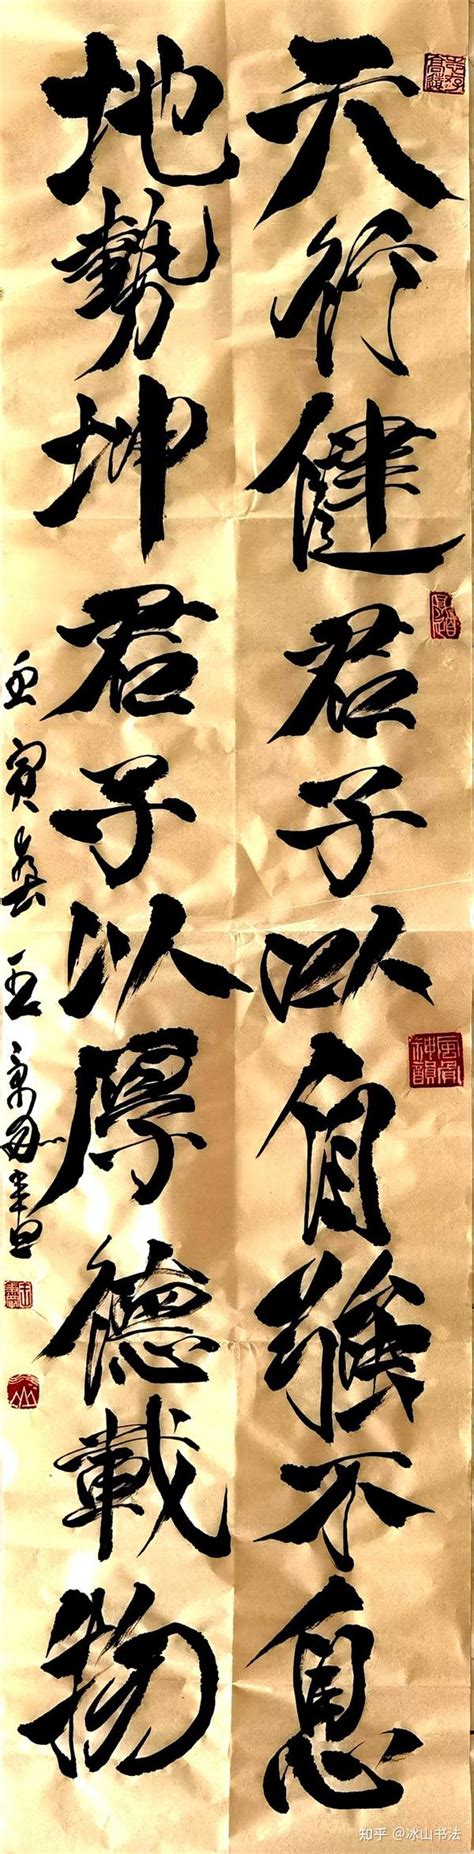 天行健君子以自強不息
地勢坤君子以厚德載物
壬寅
王
書
知乎 @冰山书法